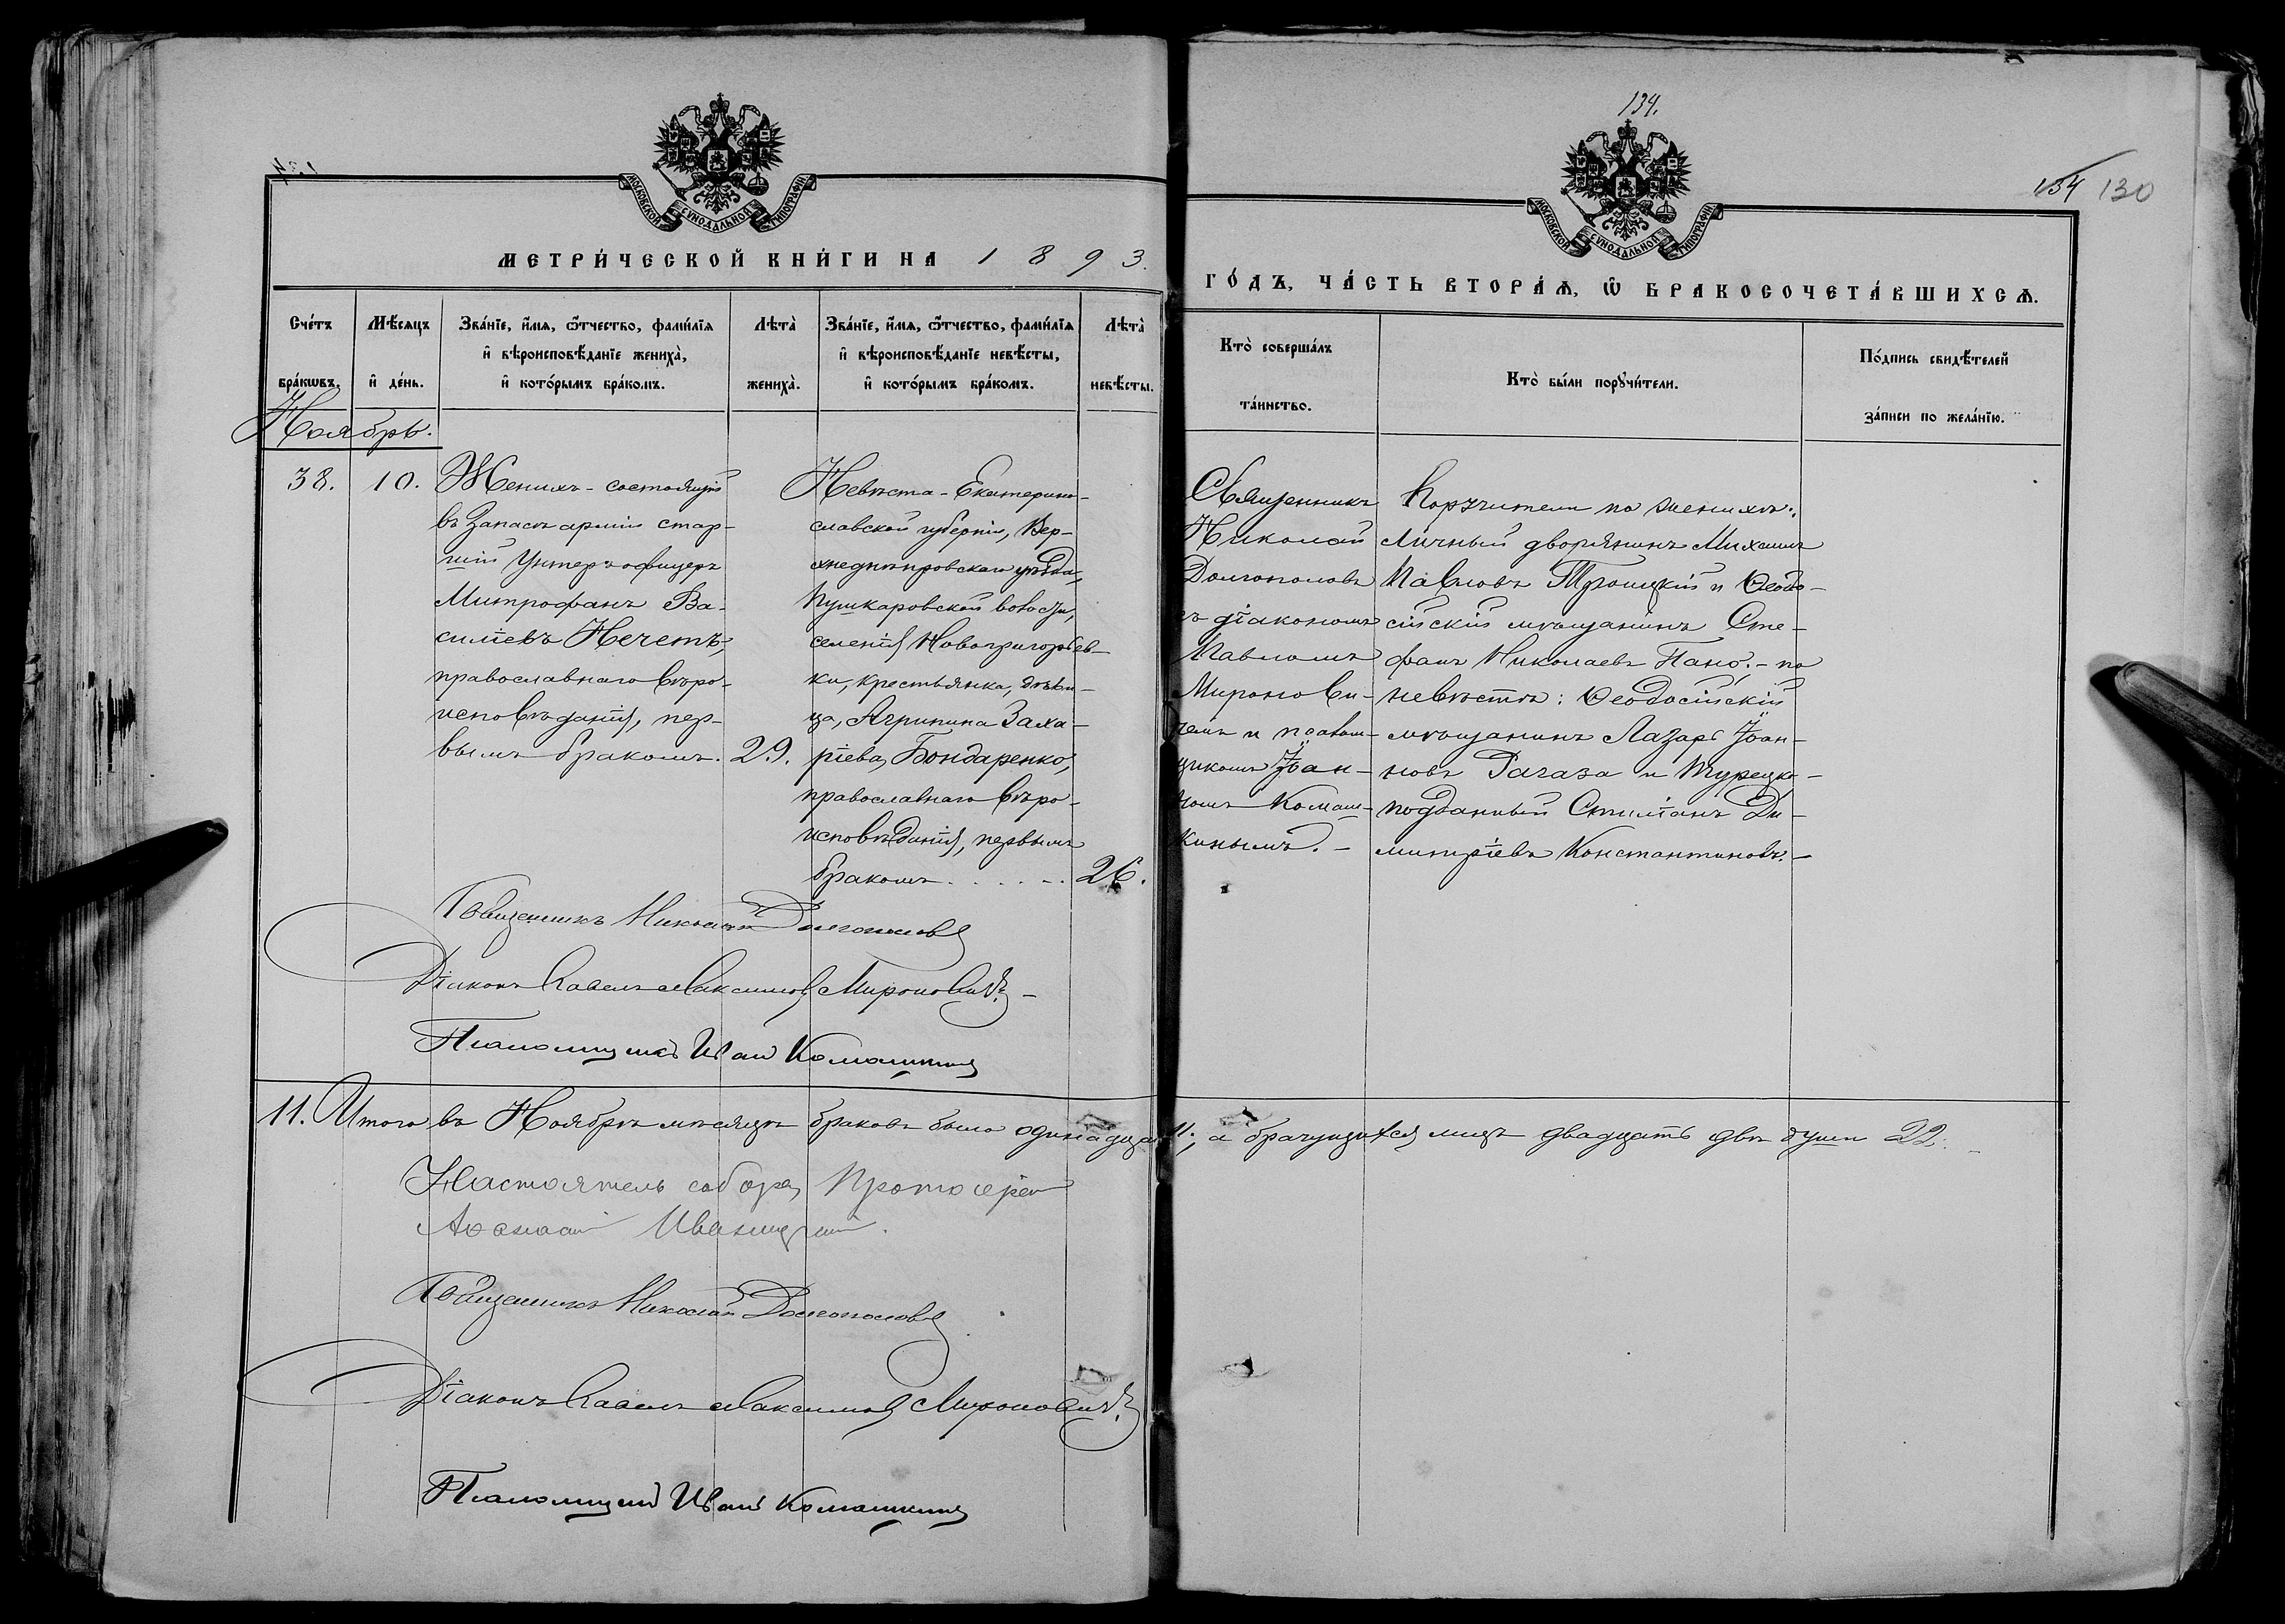 134.
134 130
МОСКОВСКОЙ СѴНОДАЛЬНОЙ ТИПОГРАФІИ
МОСКОВСКОЙ СѴНОДАЛЬНОЙ ТИПОГРАФІИ
МЕТРИ́ЧЕСКОЙ КНИ́ГИ НА 1893.
ГО́ДЪ, ЧА́СТЬ ВТОРА́Ѧ, Ѽ БРАКОСОЧЕТА́ВШИХСѦ.
Сче́тъ бра́кѡвъ.
Мѣ́сяцъ и҆ де́нь.
Зва́нїе, и҆́мѧ, ѻ҆́тчество, фами́лїѧ
и҆ вѣроисповѣ́данїе жениха̀,
и҆ кото́рымъ бра́комъ.
Лѣта̀ жениха̀.
Зва́нїе, и҆́мѧ, ѻ҆́тчество, фами́лїѧ
и҆ вѣроисповѣ́данїе невѣ́сты,
и҆ кото́рымъ бра́комъ.
Лѣта̀ невѣ́сты.
Кто̀ соверша́лъ
та́инство.
Кто̀ бы́ли порꙋчи́тели.
По́дпись свидѣ́телей
за́писи по жела́нїю.
Ноябрь.
38. 10.
Женихъ - состоящій
въ запасѣ арміи стар-
шій унтеръ офицеръ
Митрофанъ Ва-
силіевъ Нечетъ,
православнаго вѣро-
исповѣданія, пер-
вымъ бракомъ. 29.
Невѣста - Екатерино-
славской губерніи, Вер-
хнеднѣпровскаго уѣзда,
Пушкаровской волости,
селенія Новогригорьев-
ки, крестьянка, дѣви-
ца, Агрипина Заха-
ріева Бондаренко,
православнаго вѣро-
исповѣданія, первымъ
бракомъ. . . . . . 26.
Священникъ
Николай
Долгополовъ
съ діакономъ
Павломъ
Миронови-
чемъ и псалом-
щикомъ Іоан-
номъ Комаш-
кинымъ. -
Поручители по женихѣ:
личный дворянинъ Михаилъ
Павловъ Троицкій и Ѳеодо-
сійскій мѣщанинъ Сте-
фанъ Николаевъ Пано. - по
невѣстѣ: Ѳеодосійскій
мѣщанинъ Лазарь Іоан-
новъ Рагаза и Турецко-
подданный Стиліанъ Ди-
митріевъ Константиновъ. -
Священникъ Николай Долгополовъ
Діаконъ Павелъ Максимовъ Мироновичъ. -
Псаломщикъ Иванъ Комашкинъ
11. Итого въ Ноябрѣ мѣсяцѣ браковъ было одинадцать 11; а брачущихся лицъ двадцать двѣ души 22. -
Настоятель собора, Протоіерей
Аѳанасій
Священникъ Николай Долгополовъ
Діаконъ Павелъ Максимовъ Мироновичъ.
Псаломщикъ Иванъ Комашкинъ